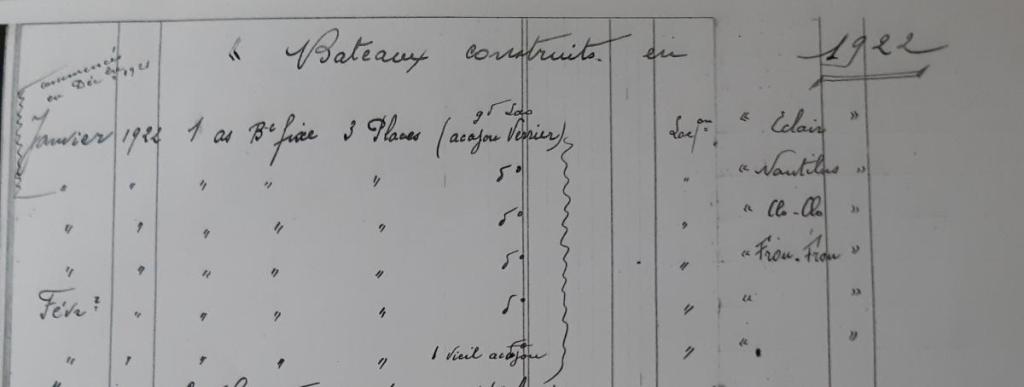 " Bateaux construits. en 1922
commencés
en Déc bre 1921
gd Lac
Janvier 1922 1 as Bc fixe 3 Places (acajou Verrier) Locon: " Eclair "
" " " " " do " " Nautilus "
" " " " " do " " Clo-Clo "
" " " " " do " " Frou-Frou "
Févr? " " " " do " " "
" " " " " 1 vieil acajou " " "